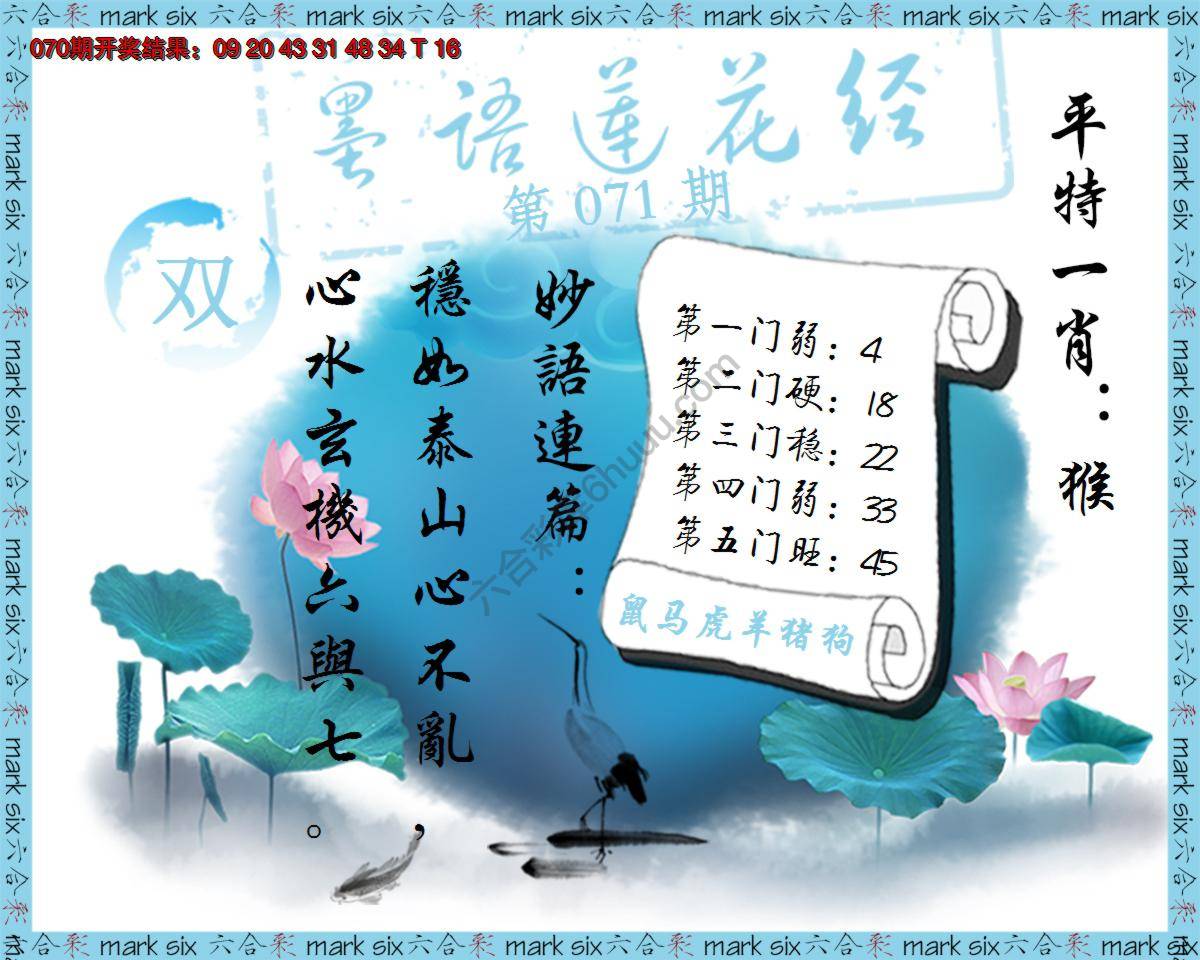 六合彩 mark six 六合彩 mark six 六合彩 mark six 六合彩 mark six 六合彩 mark six 六合彩 mark six
070期开奖结果：09 20 43 31 48 34 T 16
墨語莲花经
第 071 期
双
平特一肖：猴
妙語連篇：
穩如泰山心不亂，
心水玄機六與七。
第一门弱：4
第二门硬：18
第三门稳：22
第四门弱：33
第五门旺：45
鼠马虎羊猪狗
六合彩库6huuu.com
六合彩 mark six 六合彩 mark six 六合彩 mark six 六合彩 mark six 六合彩 mark six 六合彩 mark six